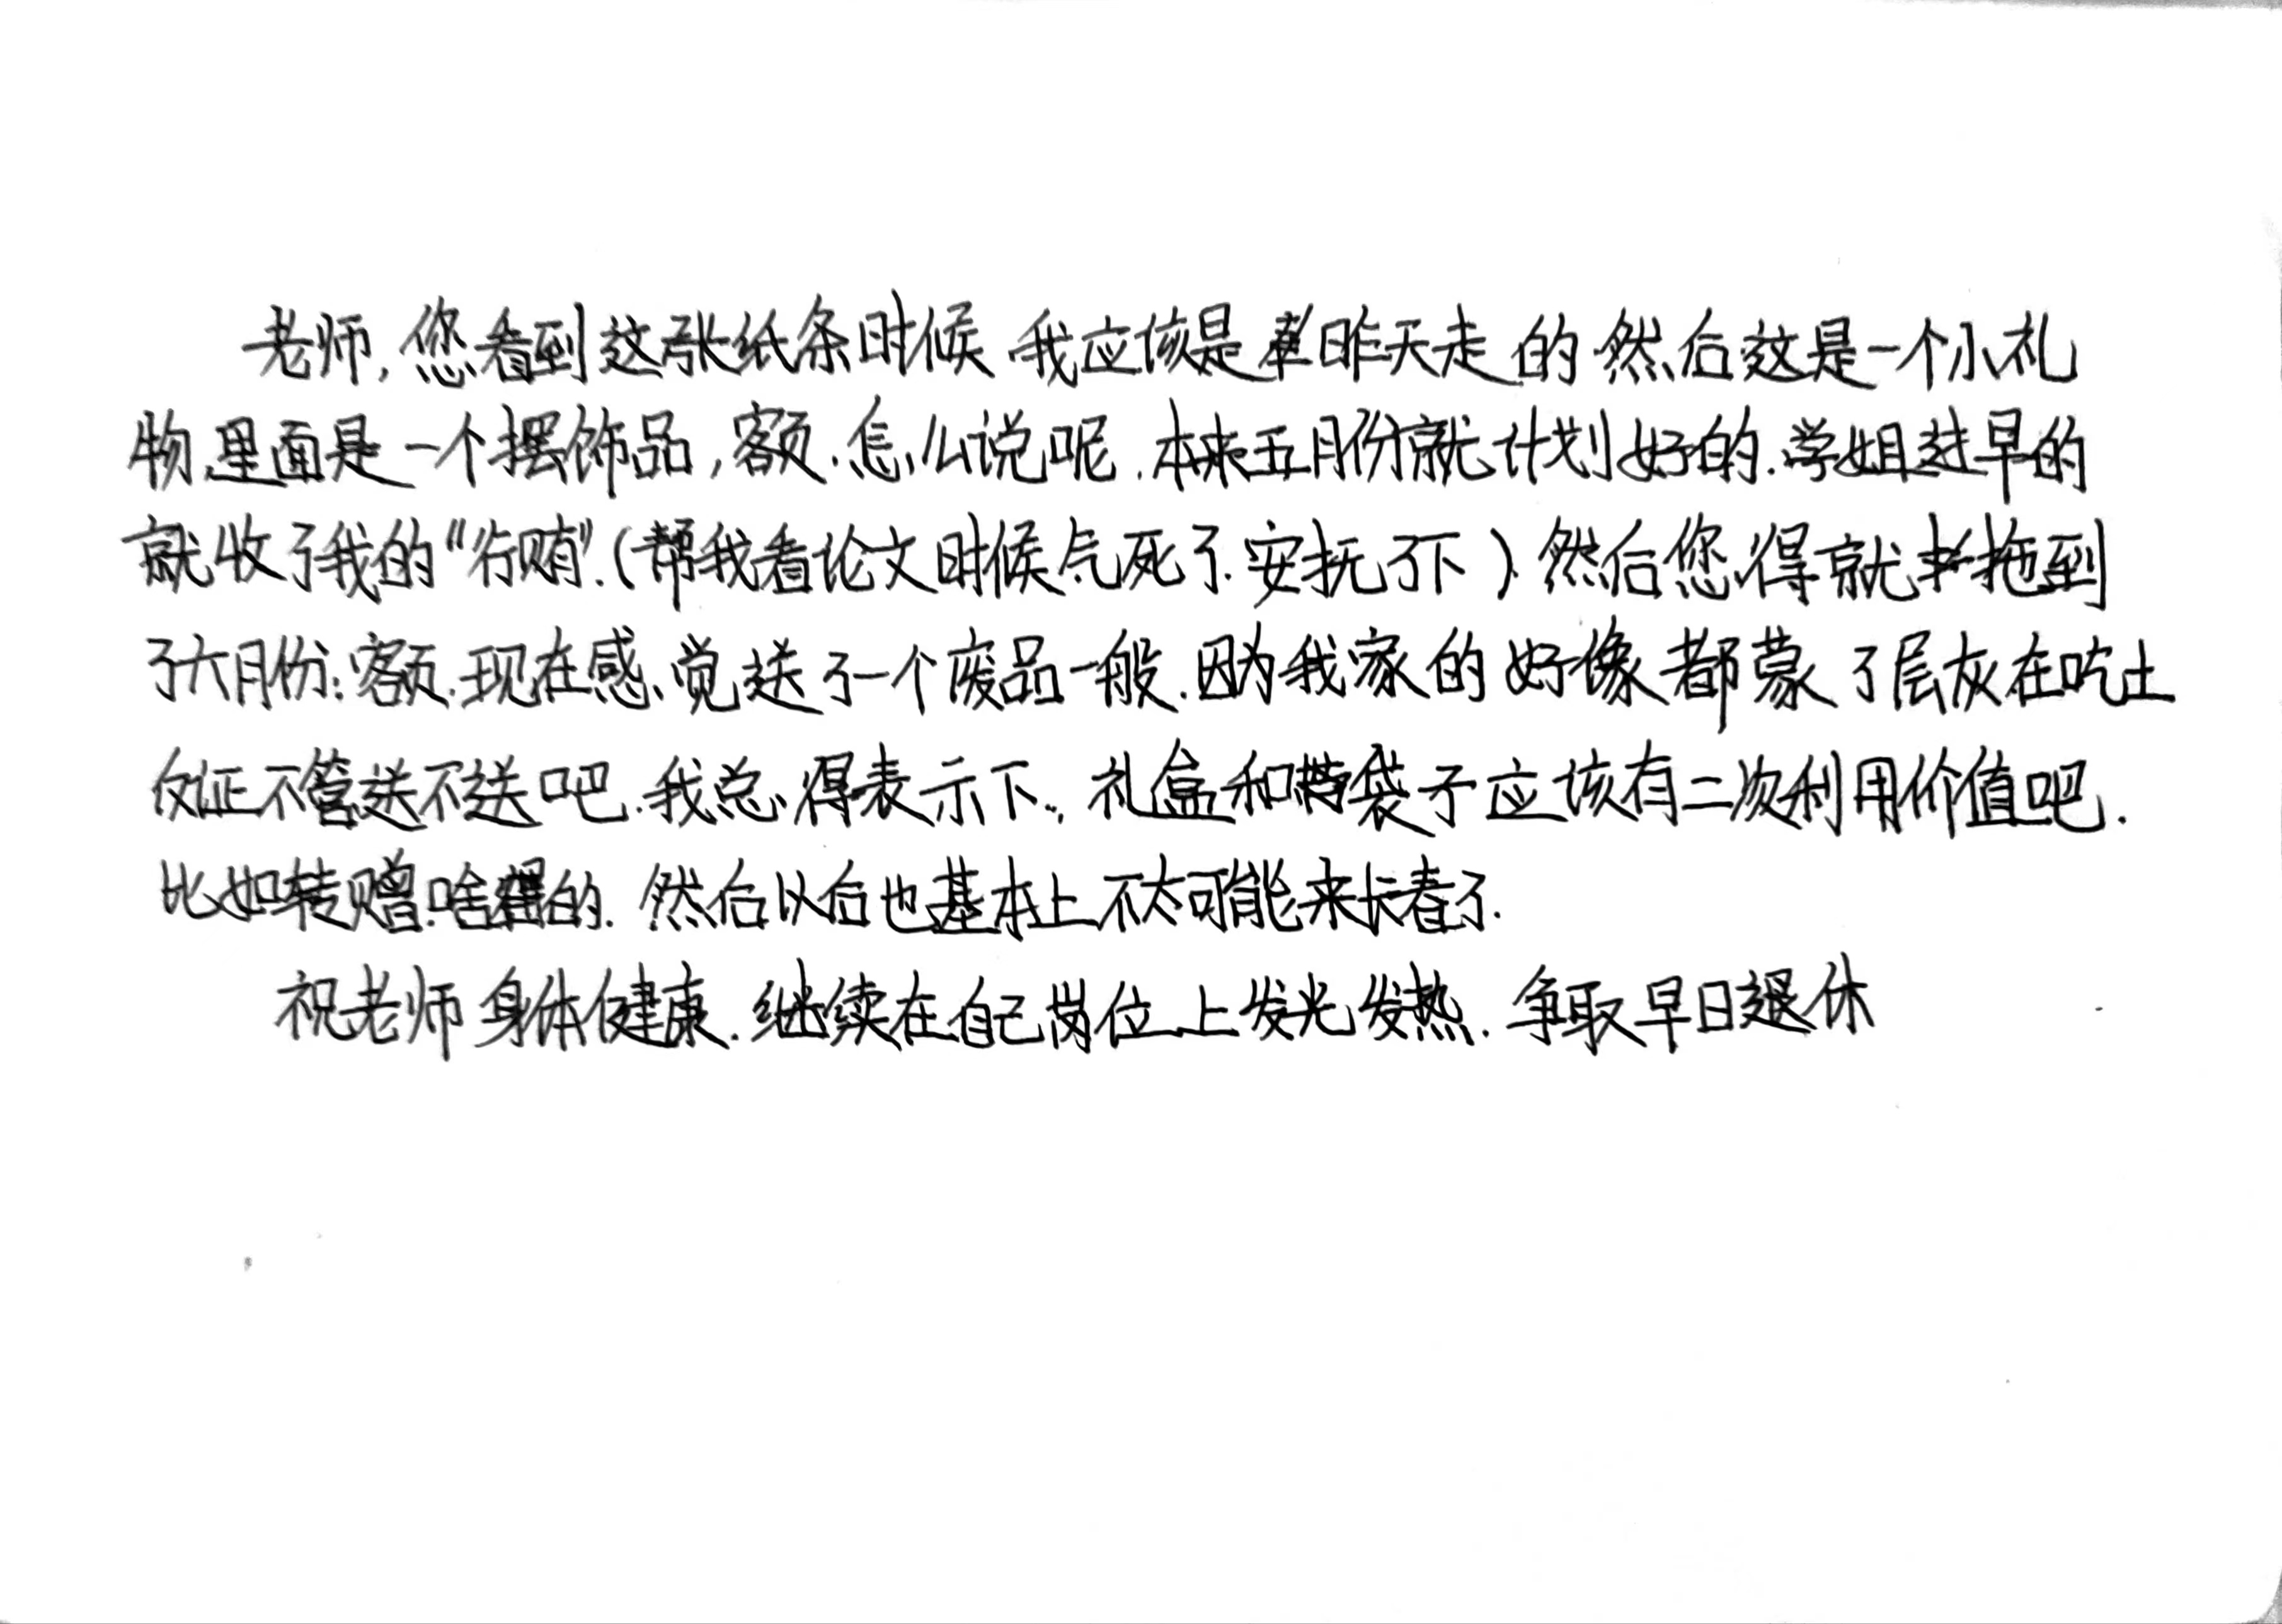 老师,您看到这张纸条时候 我应该是昨天走的 然后这是一个小礼
物.里面是一个摆饰品,额.怎么说呢.本来五月份就计划好的.学姐挺早的
就收了我的"行贿".(帮我看论文时候气死了.安抚了下).然后您得就拖到
了六月份.额.现在感觉送了一个废品一般.因为我家的好像都蒙了层灰在吃土
反正不管送不送吧.我总得表示下.礼盒和袋子应该有二次利用价值吧.
比如转赠.啥的.然后以后也基本上不太可能来长春了.
祝老师身体健康.继续在自己岗位上发光发热.争取早日退休